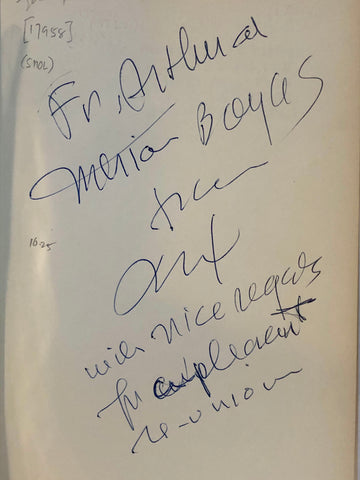 [17958]
(SMOL)
For Arthur &
Marion Boyars
from
16.25
with nice regards
for a pleasant
re-union